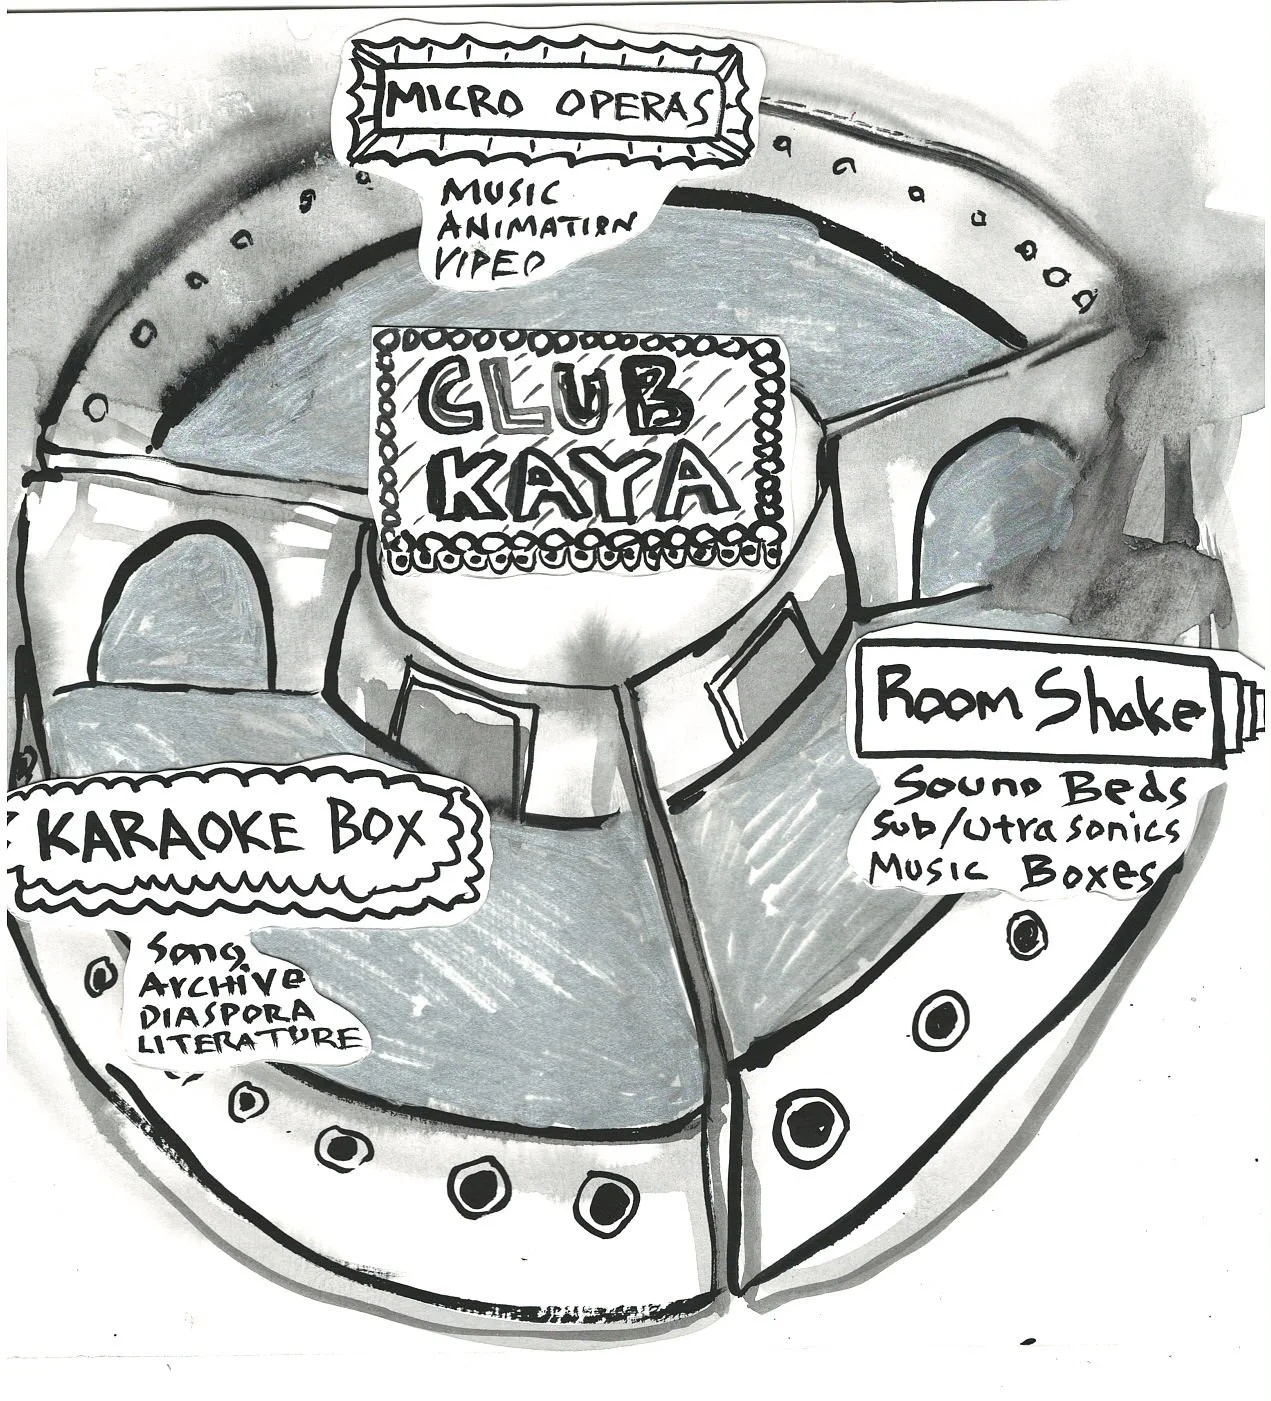 MICRO OPERAS
MUSIC
ANIMATION
VIDEO
CLUB
KAYA
ROOM Shake
Sound Beds
Sub/Utrasonics
Music Boxes
KARAOKE BOX
Song
ARCHIVE
DIASPORA
LITERATURE